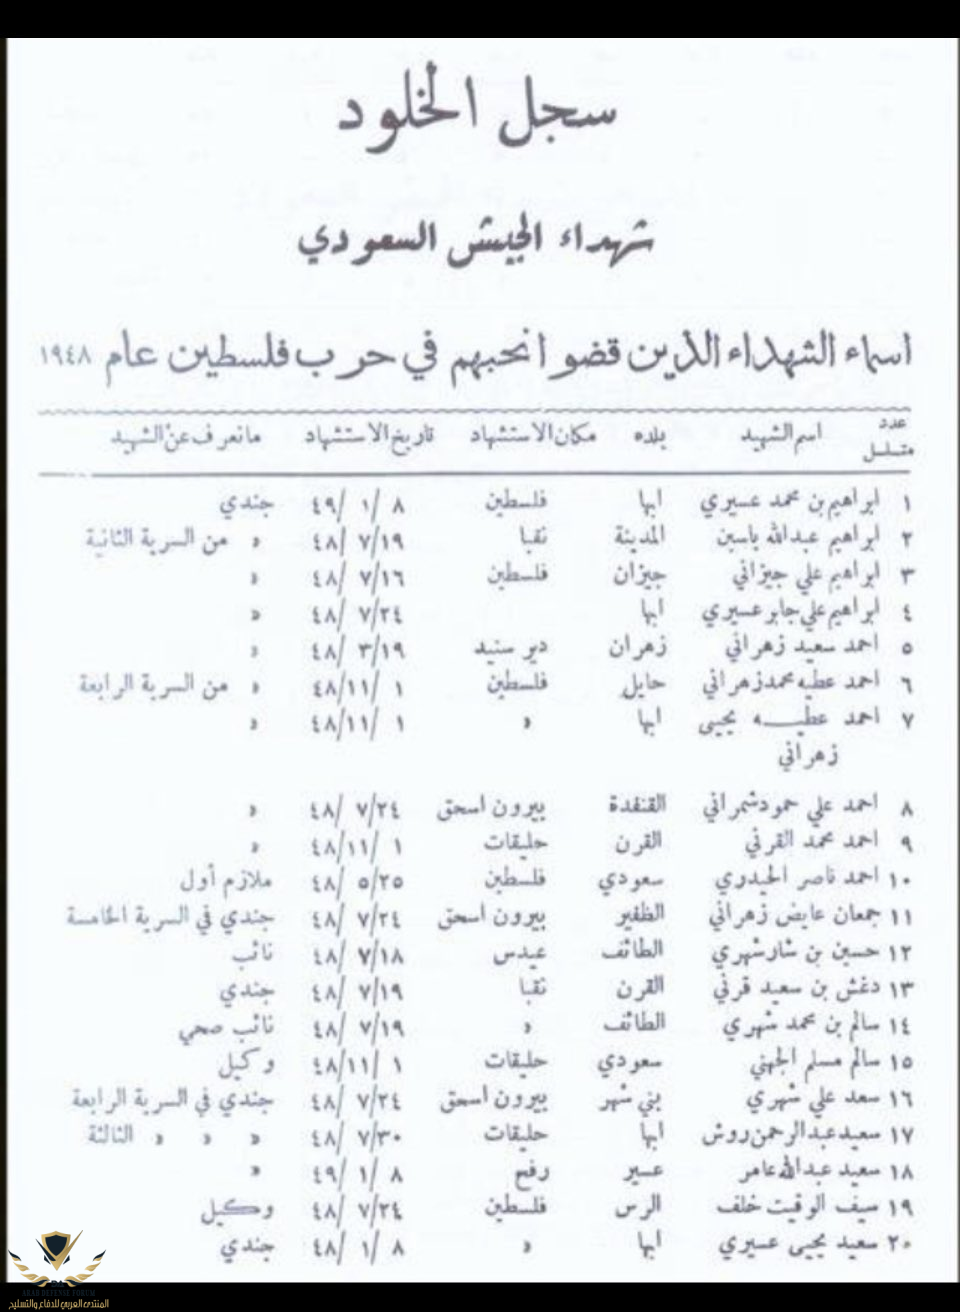 سجل الخلود
شهداء الجيش السعودي
اسماء الشهداء الذين قضوا نحبهم في حرب فلسطين عام ١٩٤٨
عدد متسلسل اسم الشهيد بلده مكان الاستشهاد تاريخ الاستشهاد ما نعرف عن الشهيد
١ ابراهيم بن محمد عسيري ابها فلسطين ٨ /١ /٤٩ جندي
٢ ابراهيم عبدالله ياسين المدينة نقبا ١٩/٧ /٤٨ « من السرية الثانية
٣ ابراهيم علي جيزاني جيزان فلسطين ١٦/٧ /٤٨ «
٤ ابراهيم علي جابر عسيري ابها ٢٤/٧ /٤٨ «
٥ احمد سعيد زهراني زهران دير سنيد ١٩/٣ /٤٨ «
٦ احمد عطيه محمد زهراني حايل فلسطين ١ /١١/٤٨ « من السرية الرابعة
٧ احمد عطيــه يحيى ابها « ١ /١١/٤٨ «
زهراني
٨ احمد علي حمود شمراني القنفدة بيرون اسحق ٢٤/٧ /٤٨ «
٩ احمد محمد القرني القرن حليقات ١ /١١/٤٨ «
١٠ احمد ناصر الحيدري سعودي فلسطين ٢٥/٥ /٤٨ ملازم أول
١١ جمعان عايض زهراني الظفير بيرون اسحق ٢٤/٧ /٤٨ جندي في السرية الخامسة
١٢ حسين بن شار شهري الطائف عيدس ١٨/٧ /٤٨ نائب
١٣ دغش بن سعيد قرني القرن نقبا ١٩/٧ /٤٨ جندي
١٤ سالم بن محمد شهري الطائف « ١٩/٧ /٤٨ نائب صحي
١٥ سالم مسلم الجهني سعودي حليقات ١ /١١/٤٨ وكيل
١٦ سعد علي شهري بني شهر بيرون اسحق ٢٤/٧ /٤٨ جندي في السرية الرابعة
١٧ سعيد عبد الرحمن روش ابها حليقات ٣٠/٧ /٤٨ « « « الثالثة
١٨ سعيد عبدالله عامر عسير رفح ٨ /١ /٤٩ «
١٩ سيف الوقيت خلف الرس فلسطين ٢٤/٧ /٤٨ وكيل
٢٠ سعيد يحيى عسيري ابها « ٨ /١ /٤٨ جندي
ARAB DEFENSE FORUM
المنتدى العربي للدفاع والتسليح